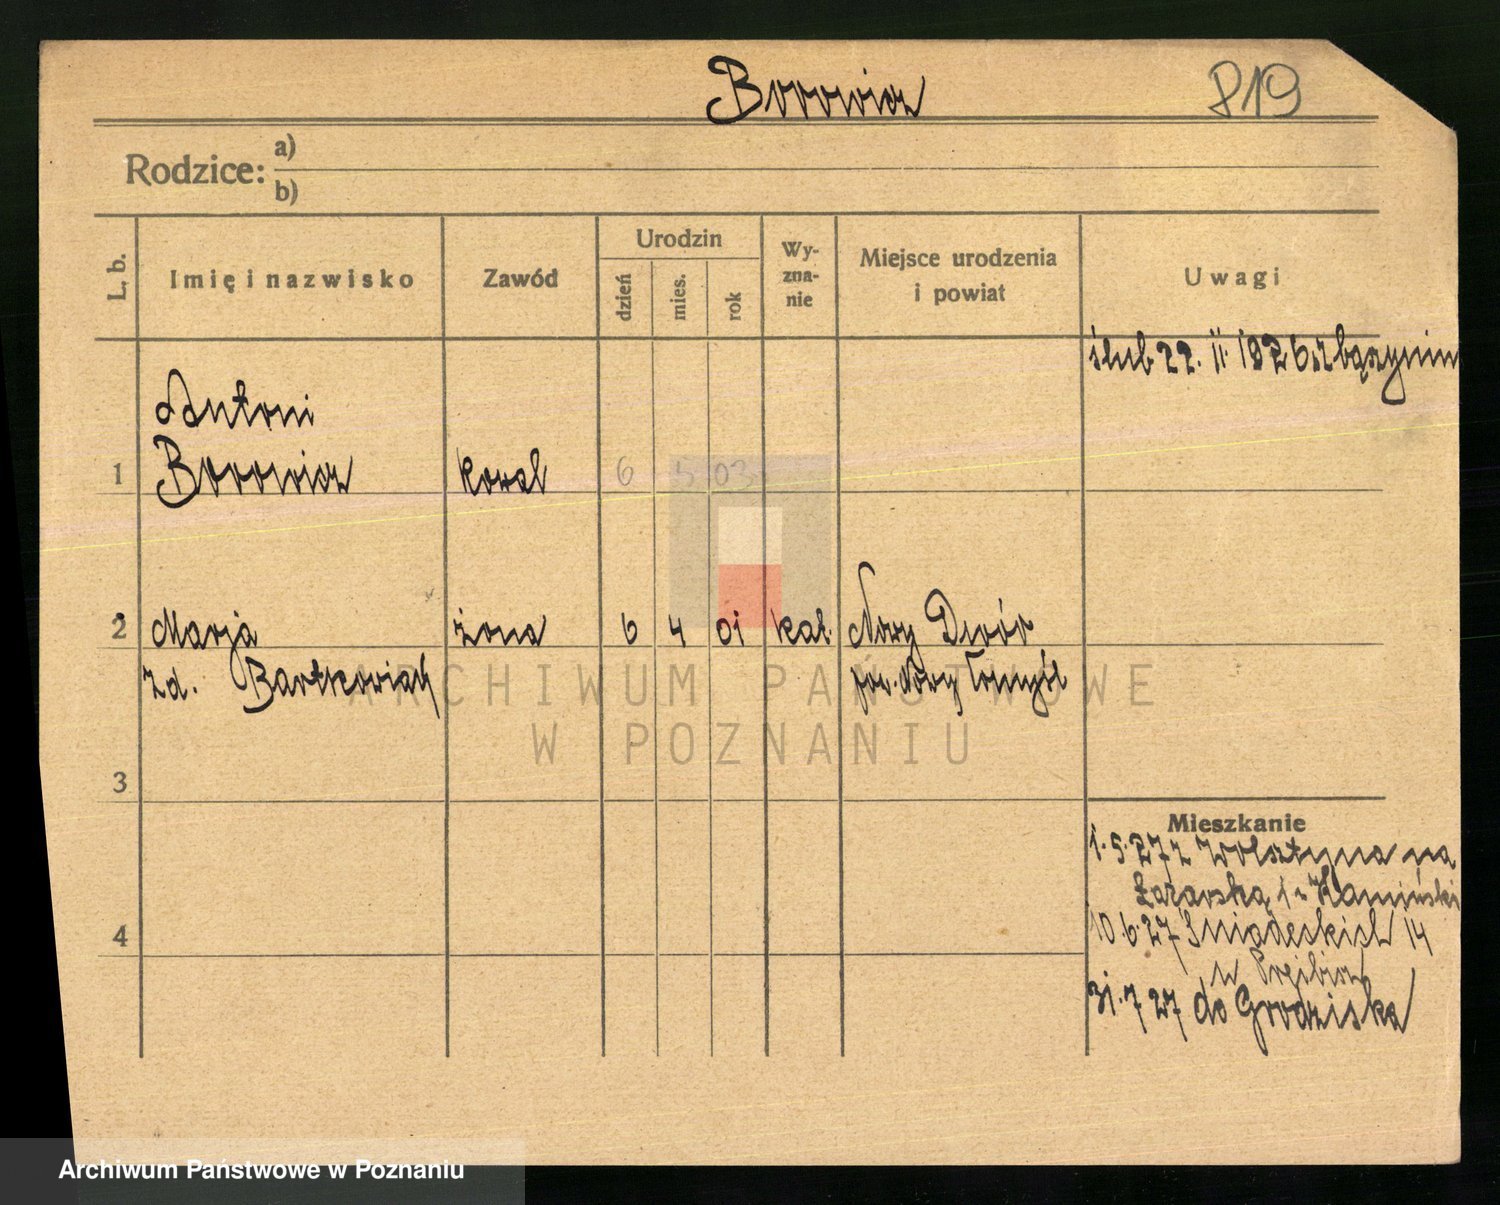 Borowicz 819
Rodzice: a)
b)
L. b. Imię i nazwisko Zawód Urodzin dzień mies. rok Wy-zna-nie Miejsce urodzenia i powiat Uwagi
ślub 22. II 1926 Zbąszynin
Antoni
1 Borowicz kowal 6 5 03
2 Marja żona 6 4 01 kat. Nowy Dwór
zd. Bartkowiach pow. Nowy Tomyśl
3
Mieszkanie
1.5.27 z Wolsztyna na
Łazarską 1 u Kamiński
4
10.6.27 Śniadeckich 14
u
31.7 27 do Grodziska
ARCHIWUM PAŃSTWOWE
W POZNANIU
Archiwum Państwowe w Poznaniu